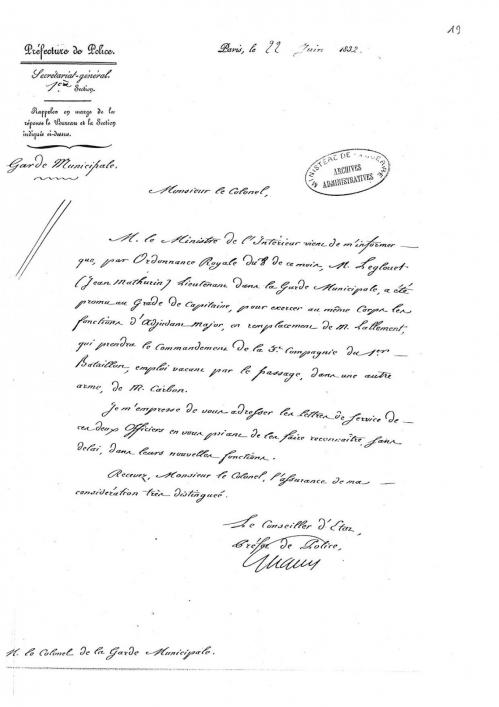 19
Préfecture de Police.
Paris, le 22 Juin 1832.
Secrétariat-général.
1ère Section.
Rappeler en marge de la
réponse le Bureau et la Section
indiqués ci-dessus.
Garde Municipale.
MINISTÈRE DE LA GUERRE
ARCHIVES
ADMINISTRATIVES
Monsieur le Colonel,
M. le Ministre de l'Intérieur vient de m'informer
que, par Ordonnance Royale du 8 de ce mois, M.
(Jean Mathurin) Lieutenant dans la Garde Municipale, a été
promu au Grade de Capitaine, pour exercer au même Corps les
fonctions d'Adjudant Major, en remplacement de M. Lallement,
qui prendra le Commandement de la 3e Compagnie du 1er
Bataillon, emploi vacant par le passage, dans une autre
arme, de M. Carbon.
Je m'empresse de vous adresser les lettres de service de
ces deux Officiers en vous priant de les faire reconnaître, sans
délai, dans leurs nouvelles fonctions.
Recevez, Monsieur le Colonel, l'assurance de ma
considération très distinguée.
Le Conseiller d'Etat,
Préfet de Police,
M. le Colonel de la Garde Municipale.